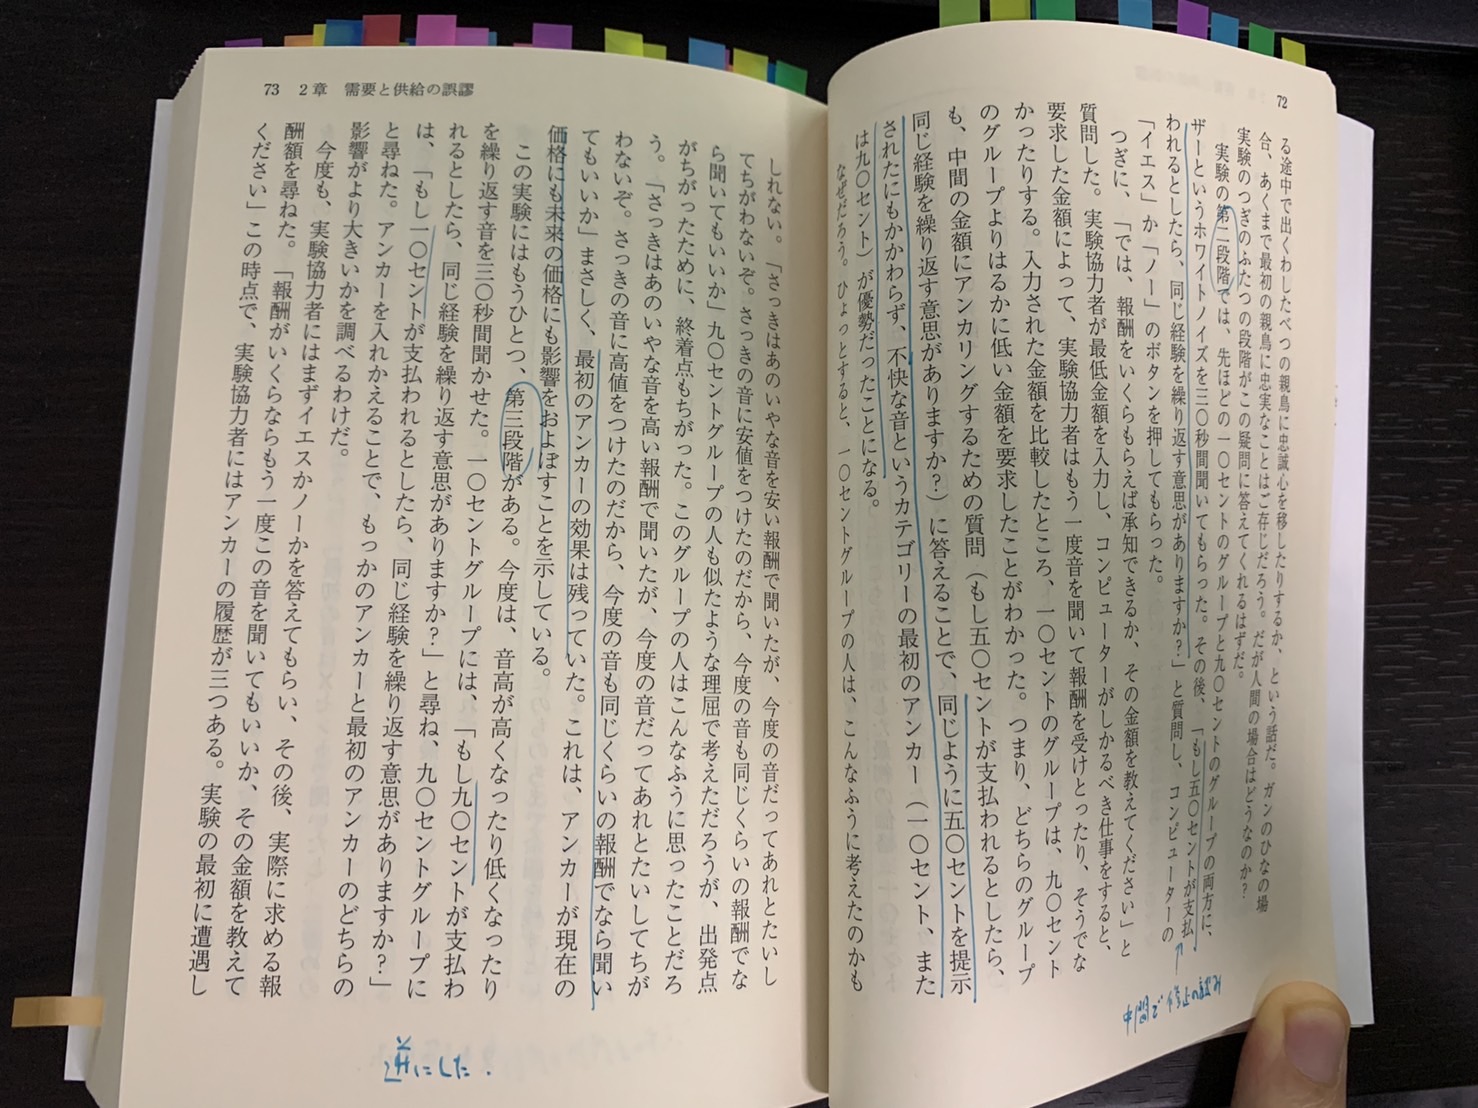 72
る途中で出くわしたべつの親鳥に忠誠心を移したりするか、という話だ。ガンのひなの場
合、あくまで最初の親鳥に忠実なことはご存じだろう。だが人間の場合はどうなのか？
実験のつぎのふたつの段階がこの疑問に答えてくれるはずだ。
実験の第二段階では、先ほどの一〇セントのグループと九〇セントのグループの両方に、
ザーというホワイトノイズを三〇秒間聞いてもらった。その後、「もし五〇セントが支払
われるとしたら、同じ経験を繰り返す意思がありますか？」と質問し、コンピューターの
「イエス」か「ノー」のボタンを押してもらった。
つぎに、「では、報酬をいくらもらえば承知できるか、その金額を教えてください」と
質問した。実験協力者が最低金額を入力し、コンピューターがしかるべき仕事をすると、
要求した金額によって、実験協力者はもう一度音を聞いて報酬を受けとったり、そうでな
かったりする。入力された金額を比較したところ、一〇セントのグループは、九〇セント
のグループよりはるかに低い金額を要求したことがわかった。つまり、どちらのグループ
も、中間の金額にアンカリングするための質問（もし五〇セントが支払われるとしたら、
同じ経験を繰り返す意思がありますか？）に答えることで、同じように五〇セントを提示
されたにもかかわらず、不快な音というカテゴリーの最初のアンカー（一〇セント、また
は九〇セント）が優勢だったことになる。
なぜだろう。ひょっとすると、一〇セントグループの人は、こんなふうに考えたのかも
中間で修正の試み
73 2章 需要と供給の誤謬
しれない。「さっきはあのいやな音を安い報酬で聞いたが、今度の音だってあれとたいし
てちがわないぞ。さっきの音に安値をつけたのだから、今度の音も同じくらいの報酬でな
ら聞いてもいいか」九〇セントグループの人も似たような理屈で考えただろうが、出発点
がちがったために、終着点もちがった。このグループの人はこんなふうに思ったことだろ
う。「さっきはあのいやな音を高い報酬で聞いたが、今度の音だってあれとたいしてちが
わないぞ。さっきの音に高値をつけたのだから、今度の音も同じくらいの報酬でなら聞い
てもいいか」まさしく、最初のアンカーの効果は残っていた。これは、アンカーが現在の
価格にも未来の価格にも影響をおよぼすことを示している。
この実験にはもうひとつ、第三段階がある。今度は、音高が高くなったり低くなったり
を繰り返す音を三〇秒間聞かせた。一〇セントグループには、「もし九〇セントが支払わ
れるとしたら、同じ経験を繰り返す意思がありますか？」と尋ね、九〇セントグループに
は、「もし一〇セントが支払われるとしたら、同じ経験を繰り返す意思がありますか？」
と尋ねた。アンカーを入れかえることで、もっかのアンカーと最初のアンカーのどちらの
影響がより大きいかを調べるわけだ。
今度も、実験協力者にはまずイエスかノーかを答えてもらい、その後、実際に求める報
酬額を尋ねた。「報酬がいくらならもう一度この音を聞いてもいいか、その金額を教えて
ください」この時点で、実験協力者にはアンカーの履歴が三つある。実験の最初に遭遇し
逆にした.